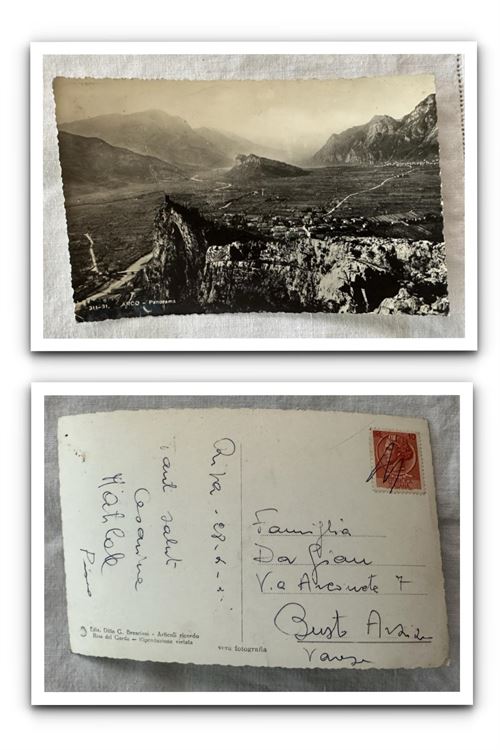 311-31. ARCO - Panorama
Riva - 28-
Tanti saluti
Cesarina
Pino
Famiglia
Dor Gian
Via 7
Busto Arsizio
Varese
Ediz. Ditta G. Bresciani - Articoli ricordo
Riva del Garda - Riproduzione vietata
vera fotografia